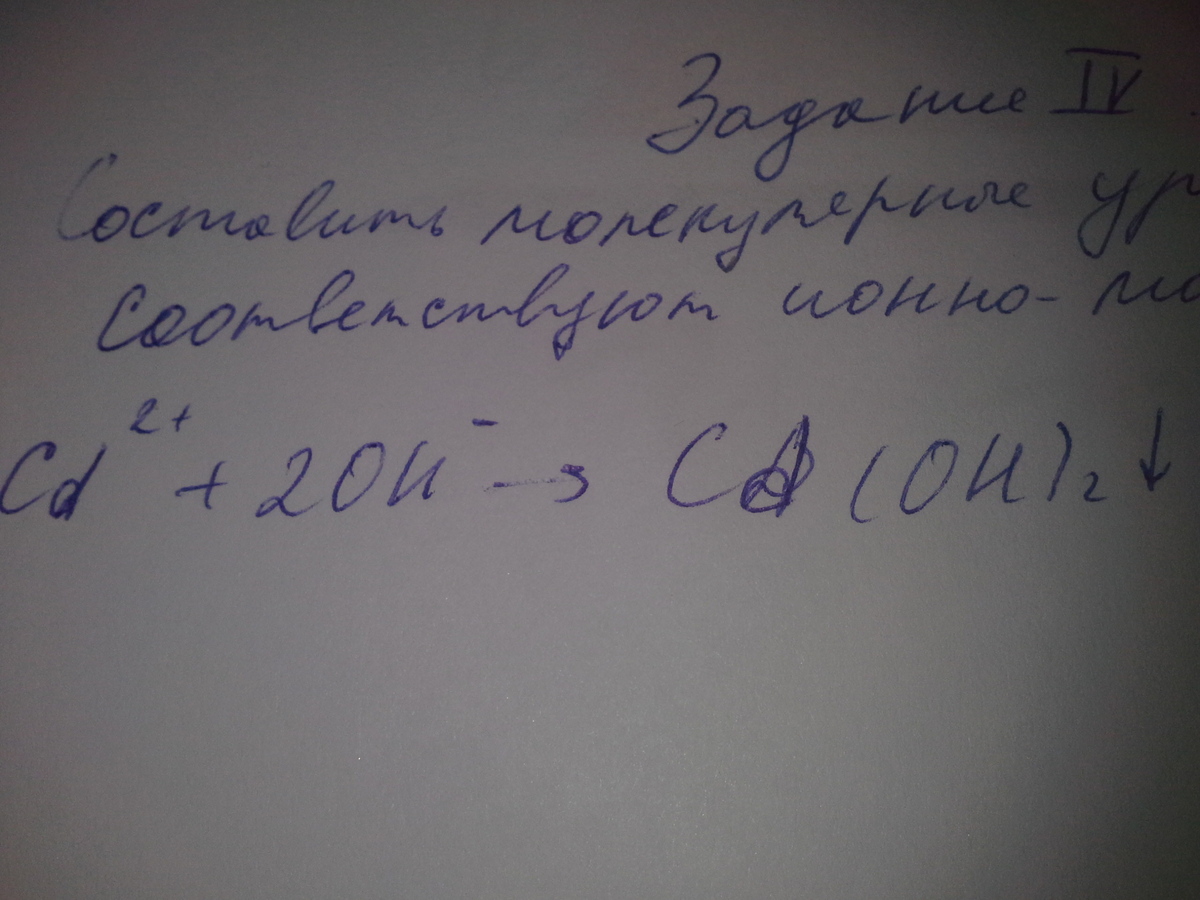 Задание IV
Составить молекулярные ур
соответствуют ионно-мо
Cd²⁺ + 2OH⁻ → Cd(OH)₂↓